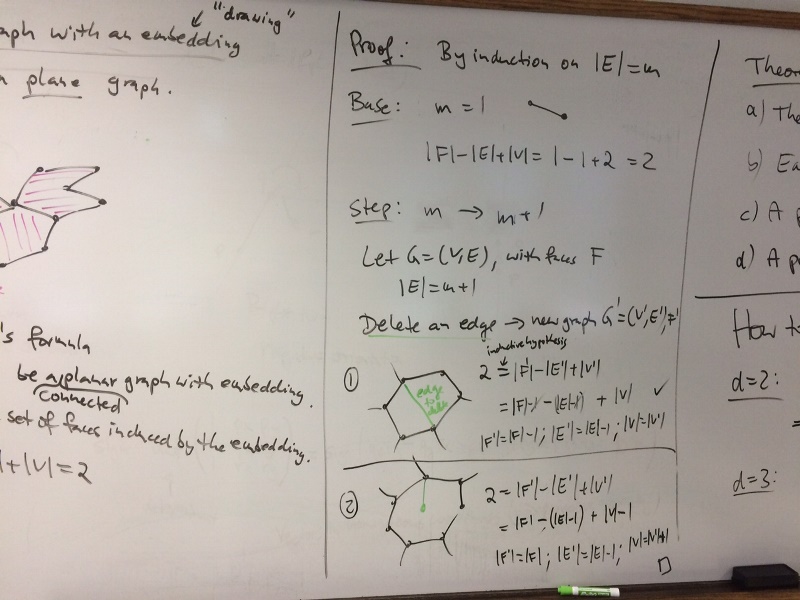 "drawing"
aph with an embedding
plane graph.
's formula
be a planar graph with embedding.
connected
set of faces induced by the embedding.
|+|V|=2
Proof: By induction on |E|=m
Base: m=1
|F|-|E|+|V|=1-1+2=2
Step: m → m+1
Let G=(V,E), with faces F
|E|=m+1
Delete an edge → new graph G'=(V',E'),F'
inductive hypothesis
① 2=|F'|-|E'|+|V'|
edge to delete
=|F|-1-(|E|-1)+|V| ✓
|F'|=|F|-1; |E'|=|E|-1; |V|=|V'|
② 2=|F'|-|E'|+|V'|
=|F|-(|E|-1)+|V|-1
|F'|=|F|; |E'|=|E|-1;
Theor
a) The
b) Ea
c) A p
d) A p
How to
d=2:
=
d=3: